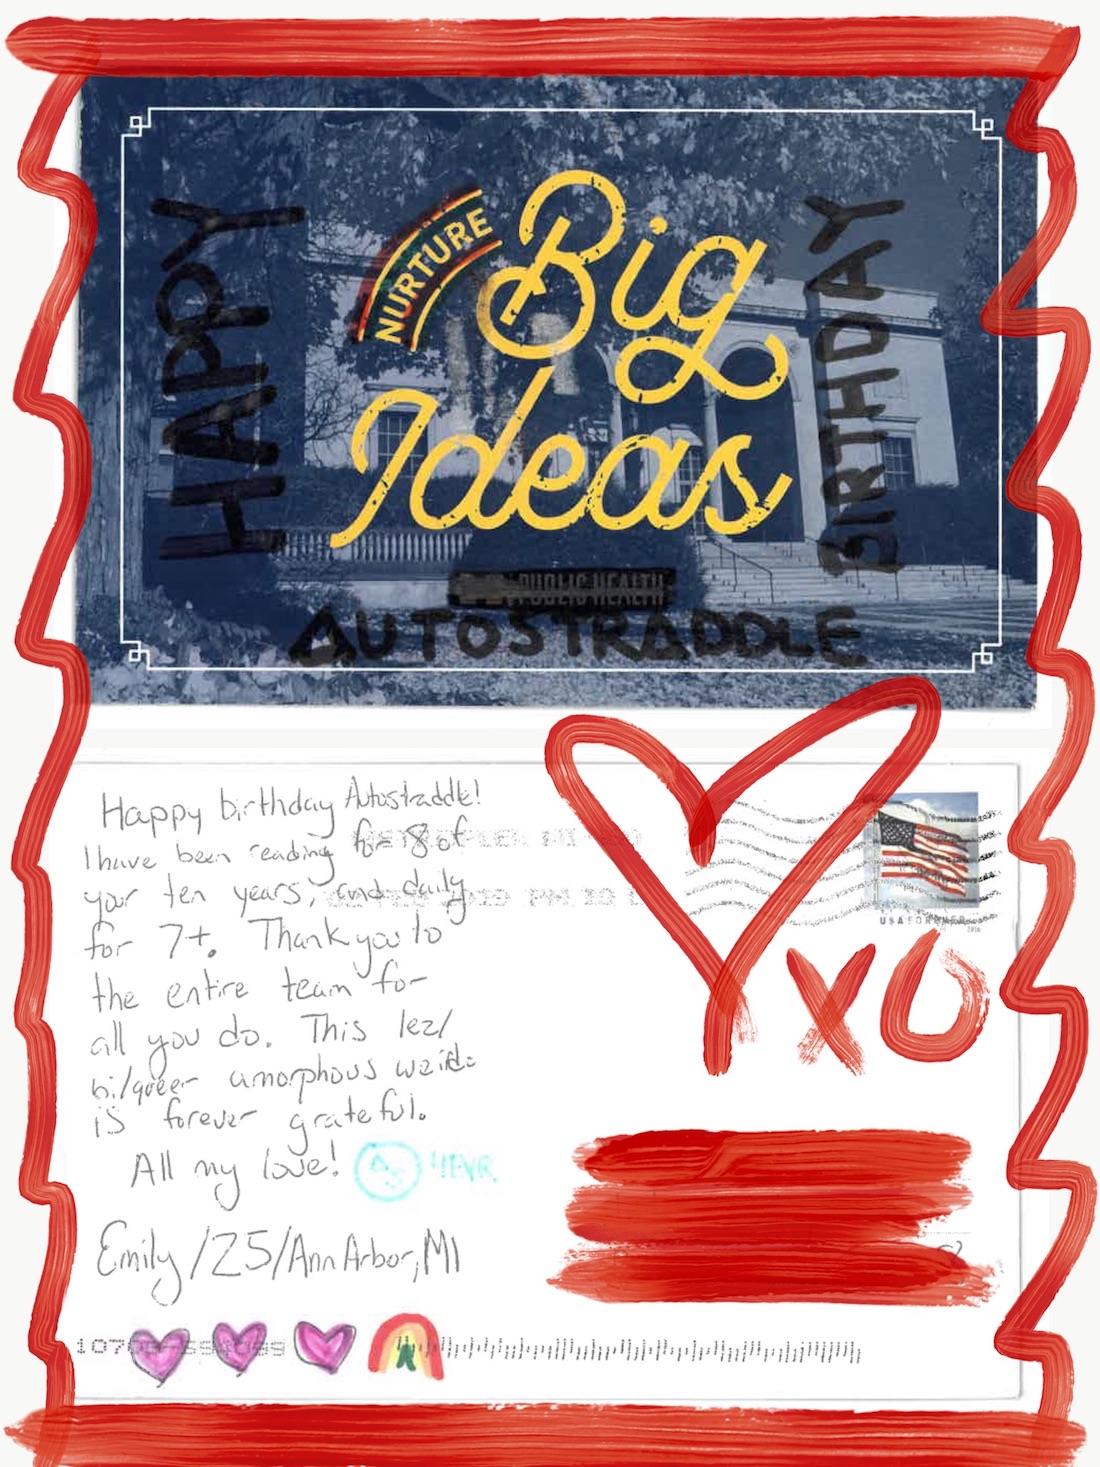 HAPPY
NURTURE
Big
Ideas
BIRTHDAY
PUBLIC HEALTH
AUTOSTRADDLE
Happy birthday Autostraddle!
I have been reading for 8 of
your ten years, and daily
for 7+. Thank you to
the entire team for
all you do. This lez/
bi/queer amorphous weirdo
is forever grateful.
All my love! AS 4EVR
Emily/25/Ann Arbor, MI
USA FOREVER
2016
XO